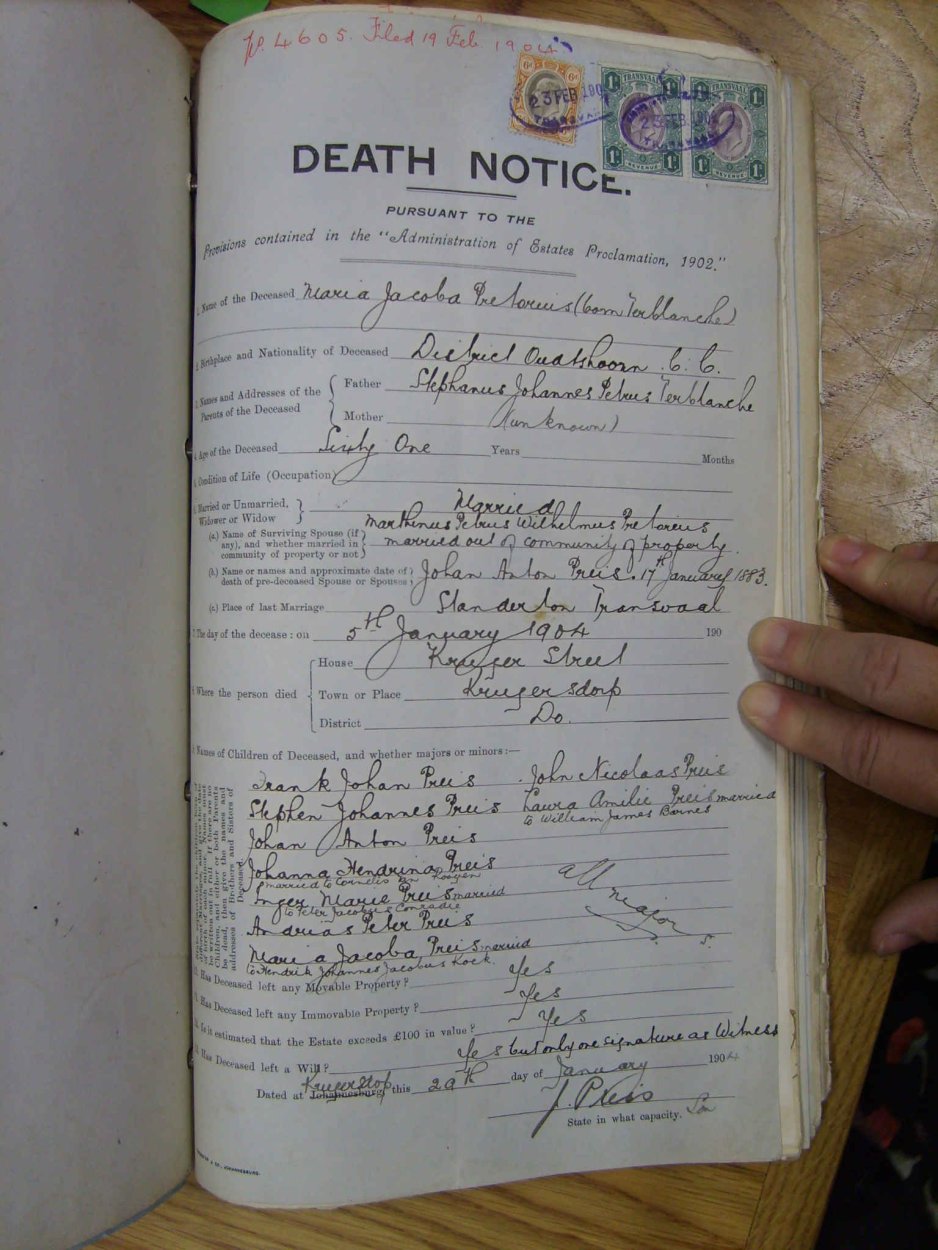 No. 4605. Filed 19 Feb 1904
6d 6d
TRANSVAAL TRANSVAAL
23 FEB 190
TRANSVAAL
1/- REVENUE 1/- 1/- REVENUE 1/-
DEATH NOTICE.
PURSUANT TO THE
Provisions contained in the "Administration of Estates Proclamation, 1902."
1. Name of the Deceased Maria Jacoba Pretorius (born Terblanche)
2. Birthplace and Nationality of Deceased District Oudtshoorn . C. C.
3. Names and Addresses of the Parents of the Deceased
Father Stephanus Johannes Petrus Terblanche
Mother (unknown)
4. Age of the Deceased Sixty One Years Months
5. Condition of Life (Occupation)
6. Married or Unmarried, Widower or Widow Married
(a.) Name of Surviving Spouse (if any), and whether married in community of property or not Marthinus Petrus Wilhelmus Pretorius
married out of community of property.
(b.) Name or names and approximate date of death of pre-deceased Spouse or Spouses Johan Anton Preis. 17th January 1883.
(c.) Place of last Marriage Standerton Transvaal
7. The day of the decease: on 5th January 1904 190
8. Where the person died
House Kruger Street
Town or Place Krugersdorp
District Do.
9. Names of Children of Deceased, and whether majors or minors:—
Frank Johan Preis . John Nicolaas Preis
Stephen Johannes Preis Laura Amilie Preis married
to William James Barnes
Johan Anton Preis
Johanna Hendrina Preis
married to Cornelis
Inger Marie Preis married
to Peter Jacobus Conradie
Andrias Peter Preis
all majors.
Maria Jacoba Preis married
to Hendrik Johannes Jacobus Kock.
be written out in full. If there are no
Children, and either or both Parents
be dead, then give the names and
addresses of Brothers and Sisters of
Deceased.
10. Has Deceased left any Movable Property? Yes
11. Has Deceased left any Immovable Property? Yes
12. Is it estimated that the Estate exceeds £100 in value? Yes
13. Has Deceased left a Will? Yes but only one signature as Witness
Dated at Johannesburg, Krugersdorp this 29th day of January 1904
J. Preis
State in what capacity. Son